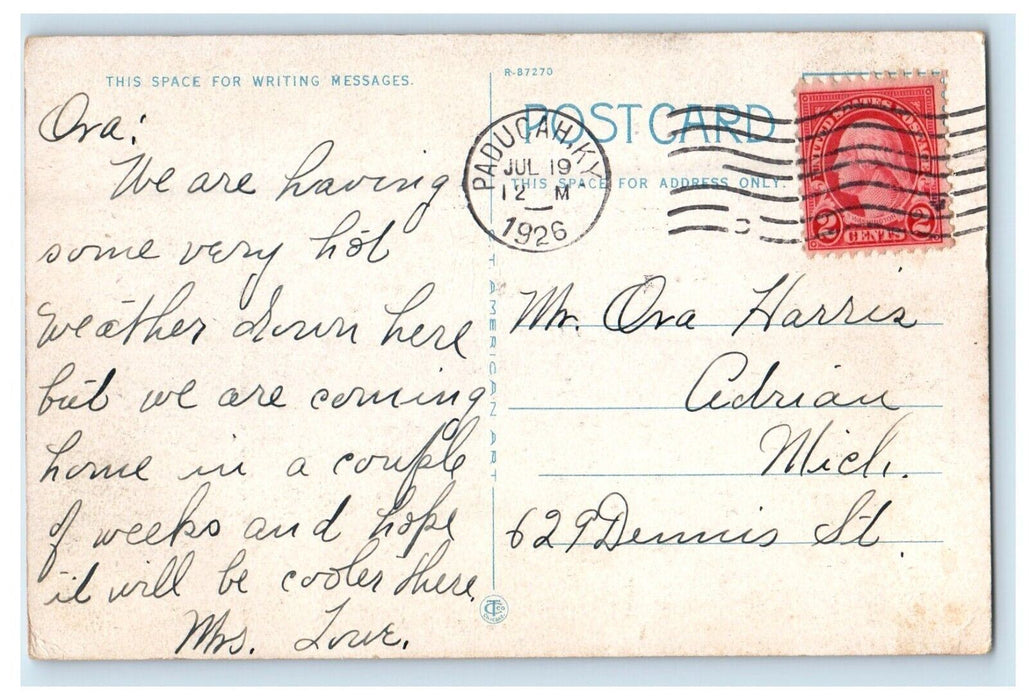 THIS SPACE FOR WRITING MESSAGES.
Ora:
We are having
some very hot
weather down here
but we are coming
home in a couple
of weeks and hope
it will be cooler there.
Mrs. Lowe.
R-87270
POST CARD
THIS SPACE FOR ADDRESS ONLY.
PADUCAH, KY.
JUL 19
12 M
1926
UNITED STATES POSTAGE
2 CENTS 2
AMERICAN ART
Mr. Ora Harris
Adrian
Mich.
629 Dennis St.